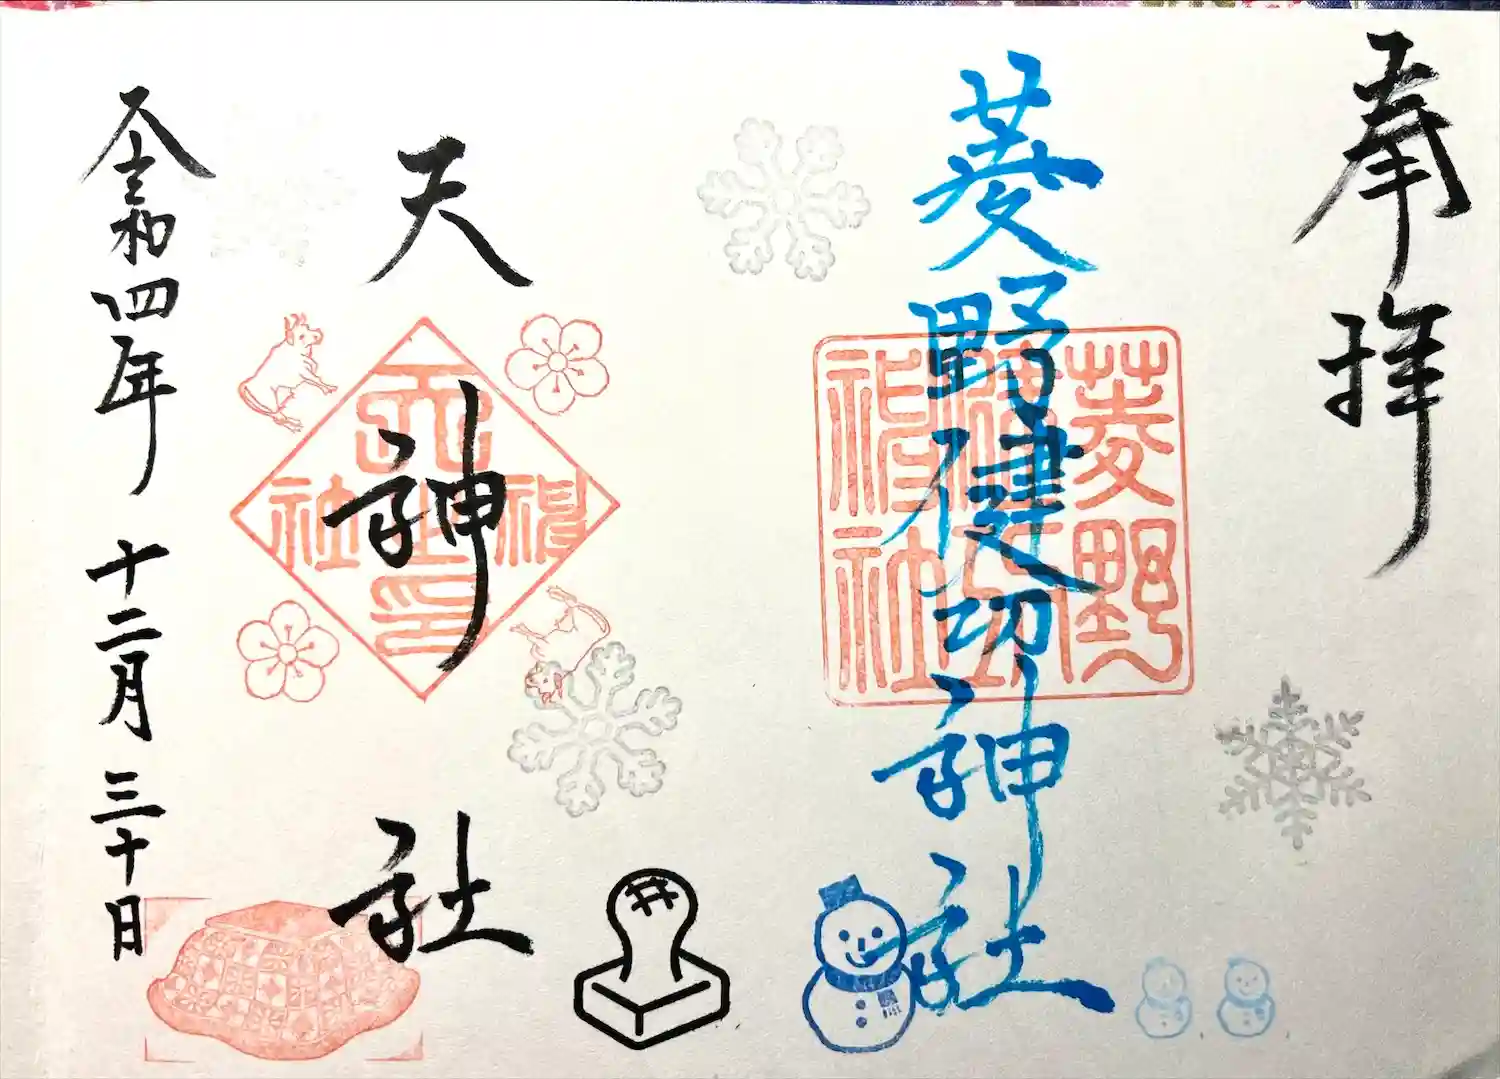 奉拝
菱野健功神社
菱野健功神社
天神社
天神社之印
令和四年 十二月 三十日